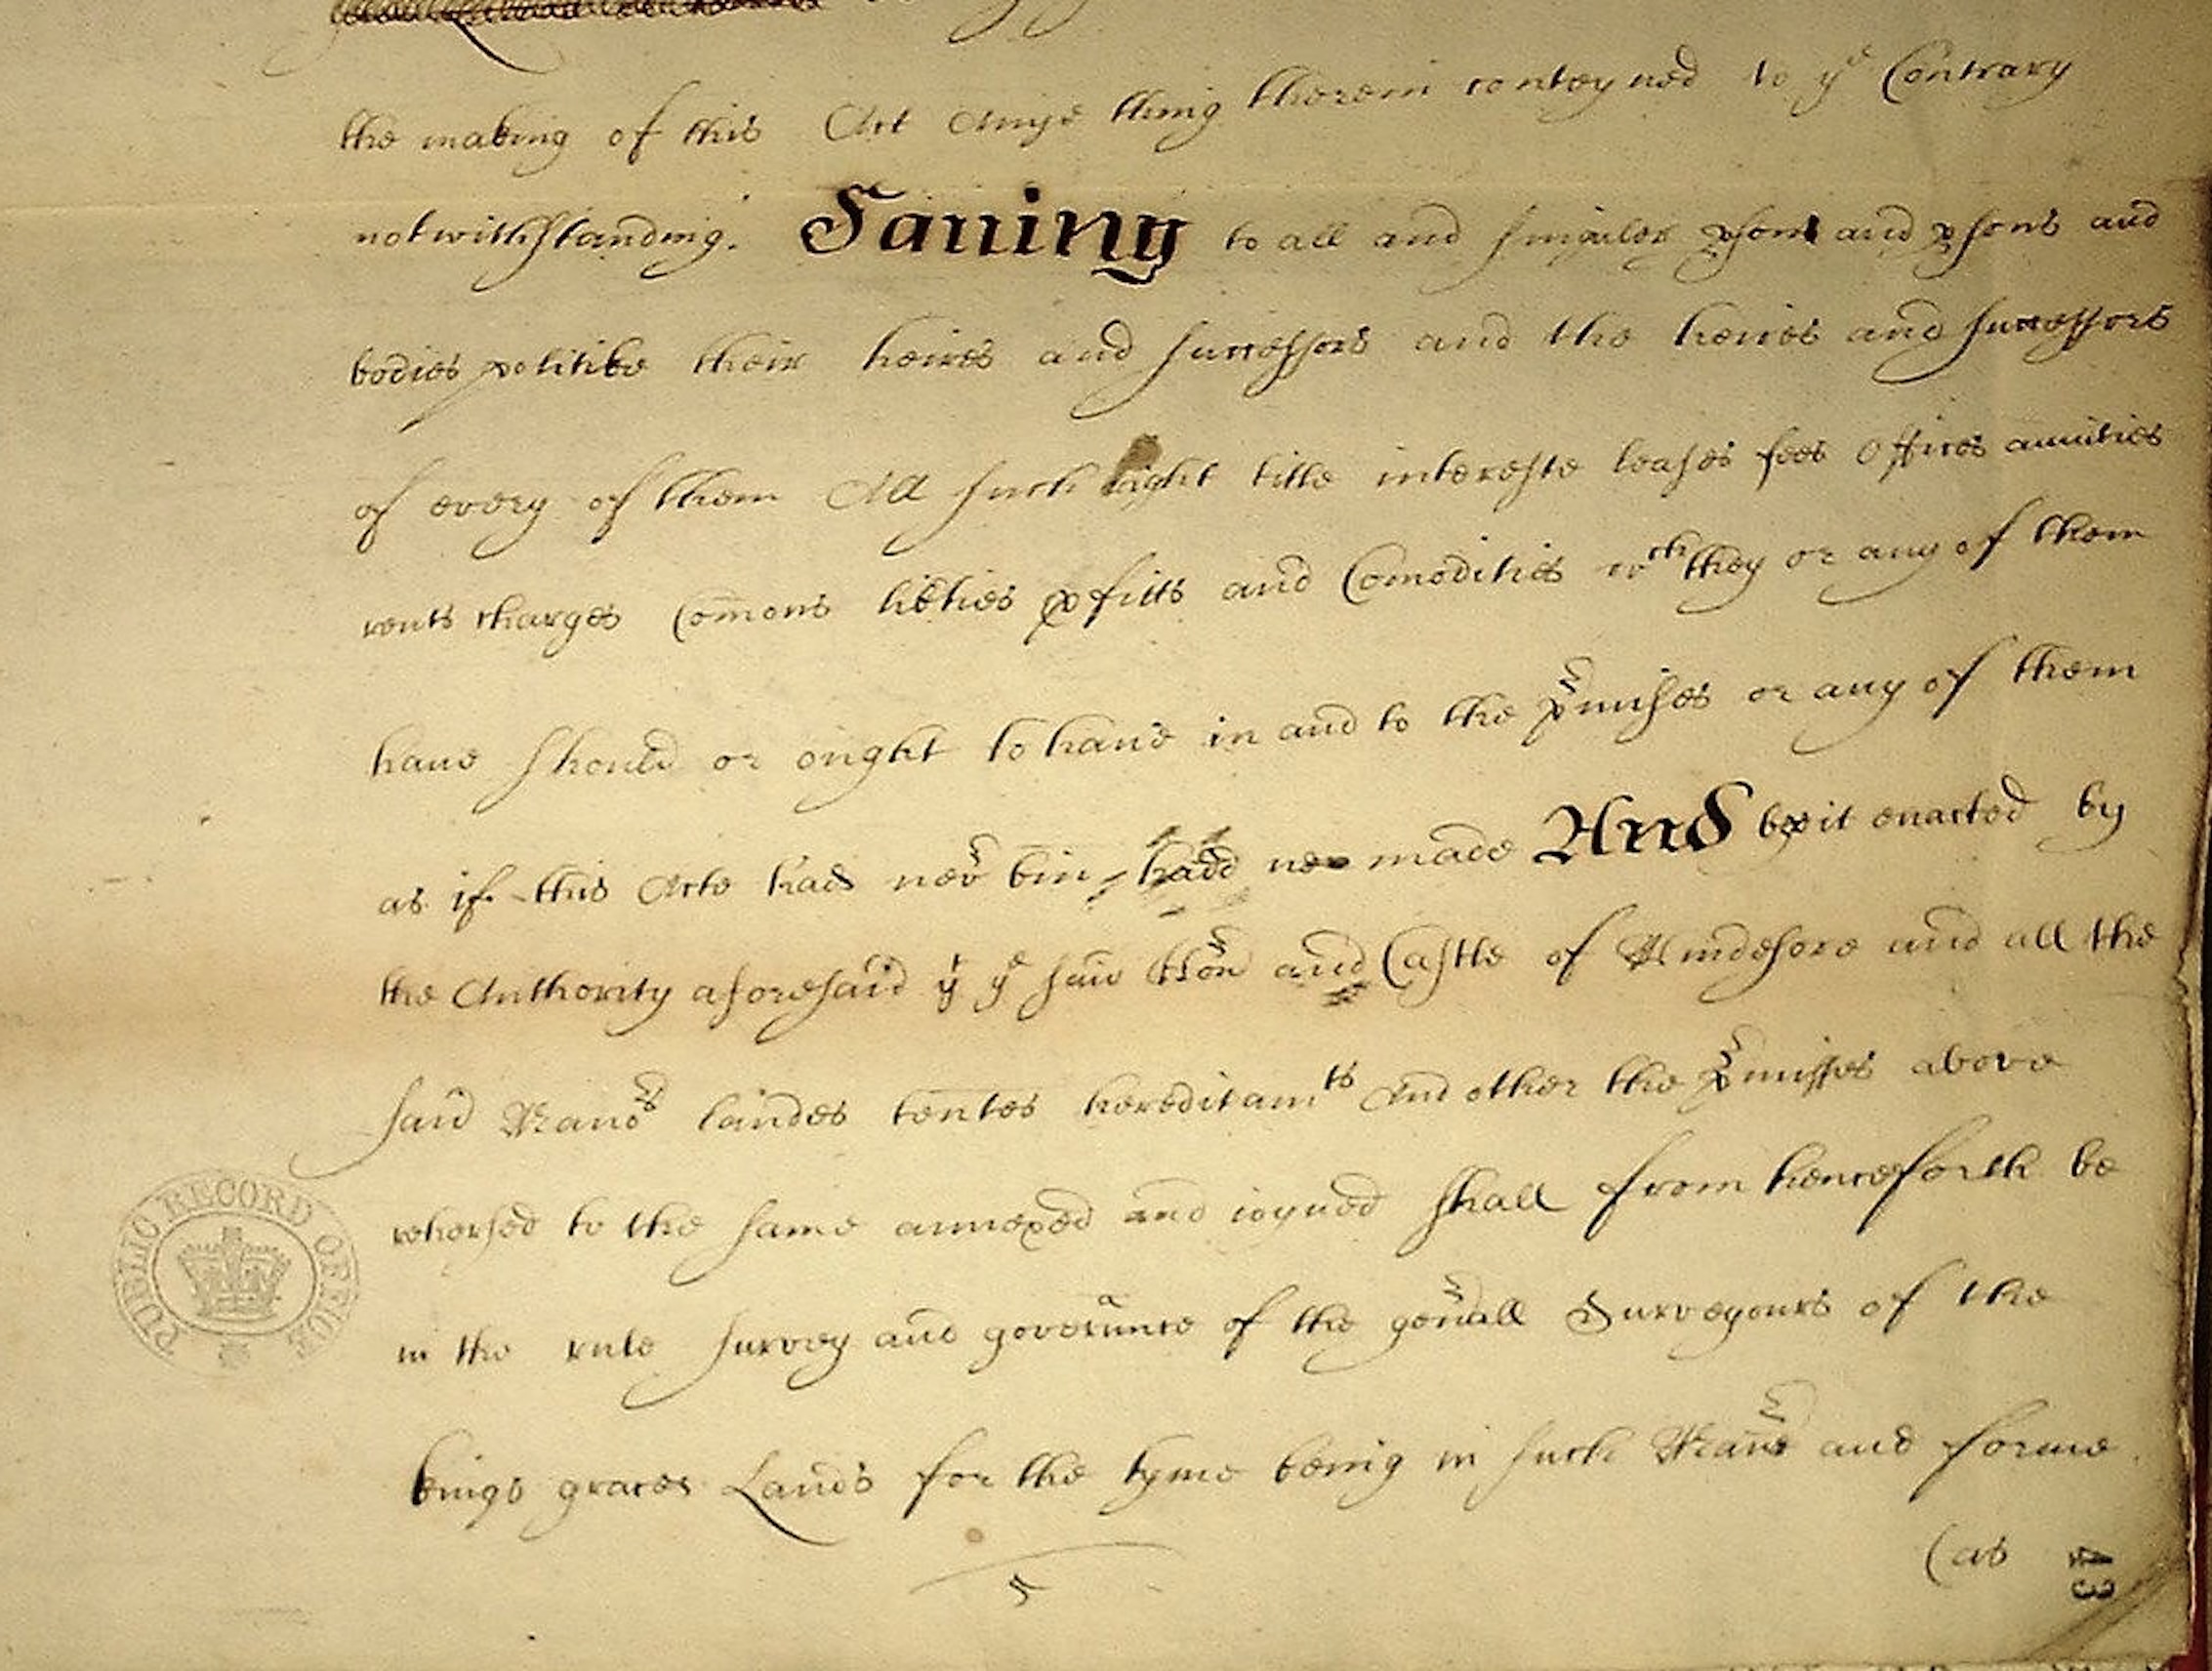 the making of this Act Anye thing therein conteyned to yᵉ Contrary
notwithstanding. Saving to all and singuler ꝑsons and ꝑsons and
bodies politike their heires and successors and the heires and successors
of every of them All such right title intereste leases fees offices annuities
rents charges Com̄ons lib̄ties ꝓfitts and Com̄odities wᶜʰ they or any of them
haue should or ought to haue in and to the p̃misses or any of them
as if this Acte had nev̄ bin made And be it enacted by
the Authority aforesaid yᵗ yᵉ said Hon̄ and Castle of Windesore and all the
said Manoˢ landes ten̄tes hereditamᵗˢ And other the p̃misses above
rehersed to the same annexed and ioyned shall from henceforth be
in the rule survey and governᵃnce of the gen̄all Surveyours of the
kings graces Lands for the tyme being in such Man̄ and forme
(as
5
43
PUBLIC RECORD OFFICE